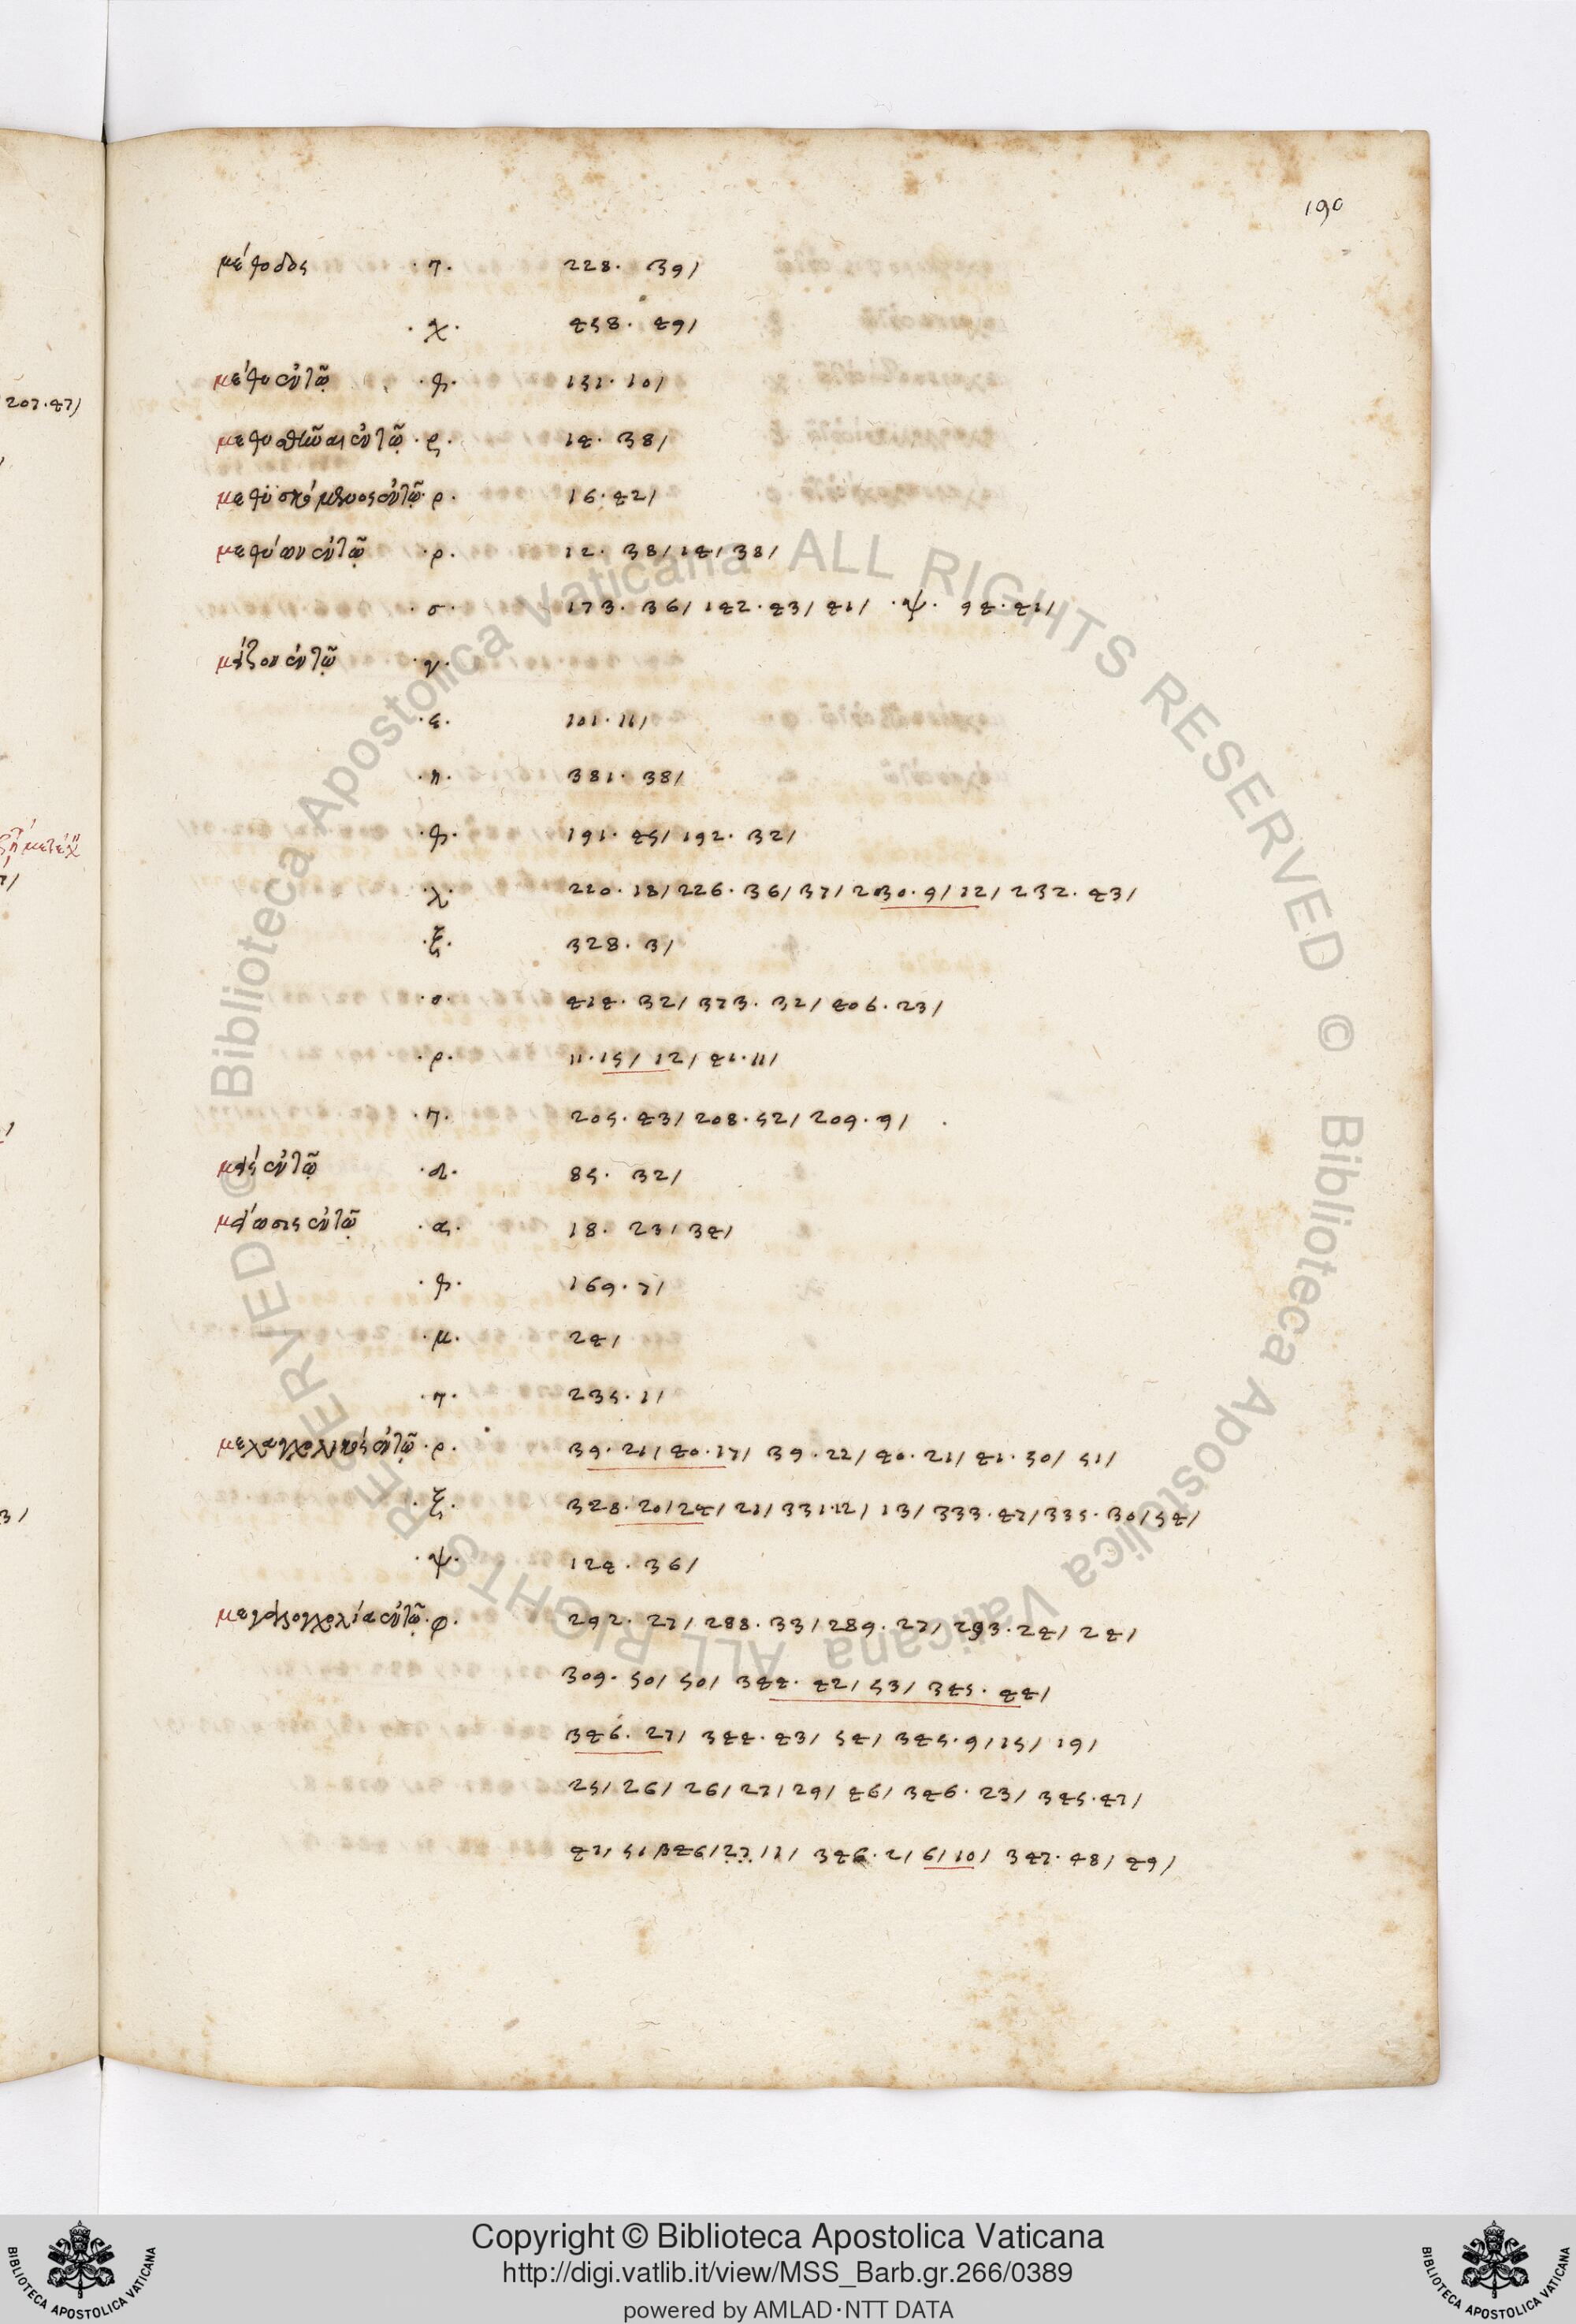 190
μέθοδος ·π· 228· 39/
·χ· 458· 49/
μέθυ ἐν τῷ ·θ· 131· 10/
μεθυσθῶσι ἐν τῷ ·ρ· 14· 38/
μεθυσκόμενος ἐν τῷ ·ρ· 16·42/
μεθύων ἐν τῷ ·ρ· 12· 38/14/38/
·σ· 173· 36/ 142·43/ 41/ ·ψ· 94·41/
μεῖζον ἐν τῷ ·γ·
·ε· 101·11/
·η· 381· 38/
·θ· 191· 45/ 192· 32/
·λ· 220·18/ 226·36/ 37/ 230·9/ 12/ 232·43/
·ξ· 328· 3/
·ο· 414· 32/ 373· 32/ 406·23/
·ρ· 11·15/ 12/ 41·11/
·π· 205·43/ 208·52/ 209·9/
μείς ἐν τῷ ·δ· 85· 32/
μείωσις ἐν τῷ ·α· 18· 23/ 34/
·θ· 169·7/
·μ· 24/
·π· 235·1/
μελαγχολικός ἐν τῷ ·ρ· 39·21/ 40·17/ 39·22/ 40·21/ 41·50/ 51/
·ξ· 328·20/24/ 21/ 331·12/ 13/ 333·47/ 335·30/54/
·ψ· 124·36/
ἐν τῷ ·φ· 292·27/ 288·33/ 289·27/ 293·24/ 24/
309·50/ 50/ 344·42/ 53/ 345·44/
346·27/ 344·43/ 54/ 345·9/ 15/ 19/
25/ 26/ 26/ 27/ 29/ 46/ 346·23/ 345·47/
47/ 51/ 346/ 27/ 11/ 346·2/ 6/ 10/ 347·48/ 49/
207·47/
Copyright © Biblioteca Apostolica Vaticana
http://digi.vatlib.it/view/MSS_Barb.gr.266/0389
powered by AMLAD·NTT DATA
BIBLIOTECA APOSTOLICA VATICANA
BIBLIOTECA APOSTOLICA VATICANA
© Biblioteca Apostolica Vaticana ALL RIGHTS RESERVED © Biblioteca Apostolica Vaticana ALL RIGHTS RESERVED